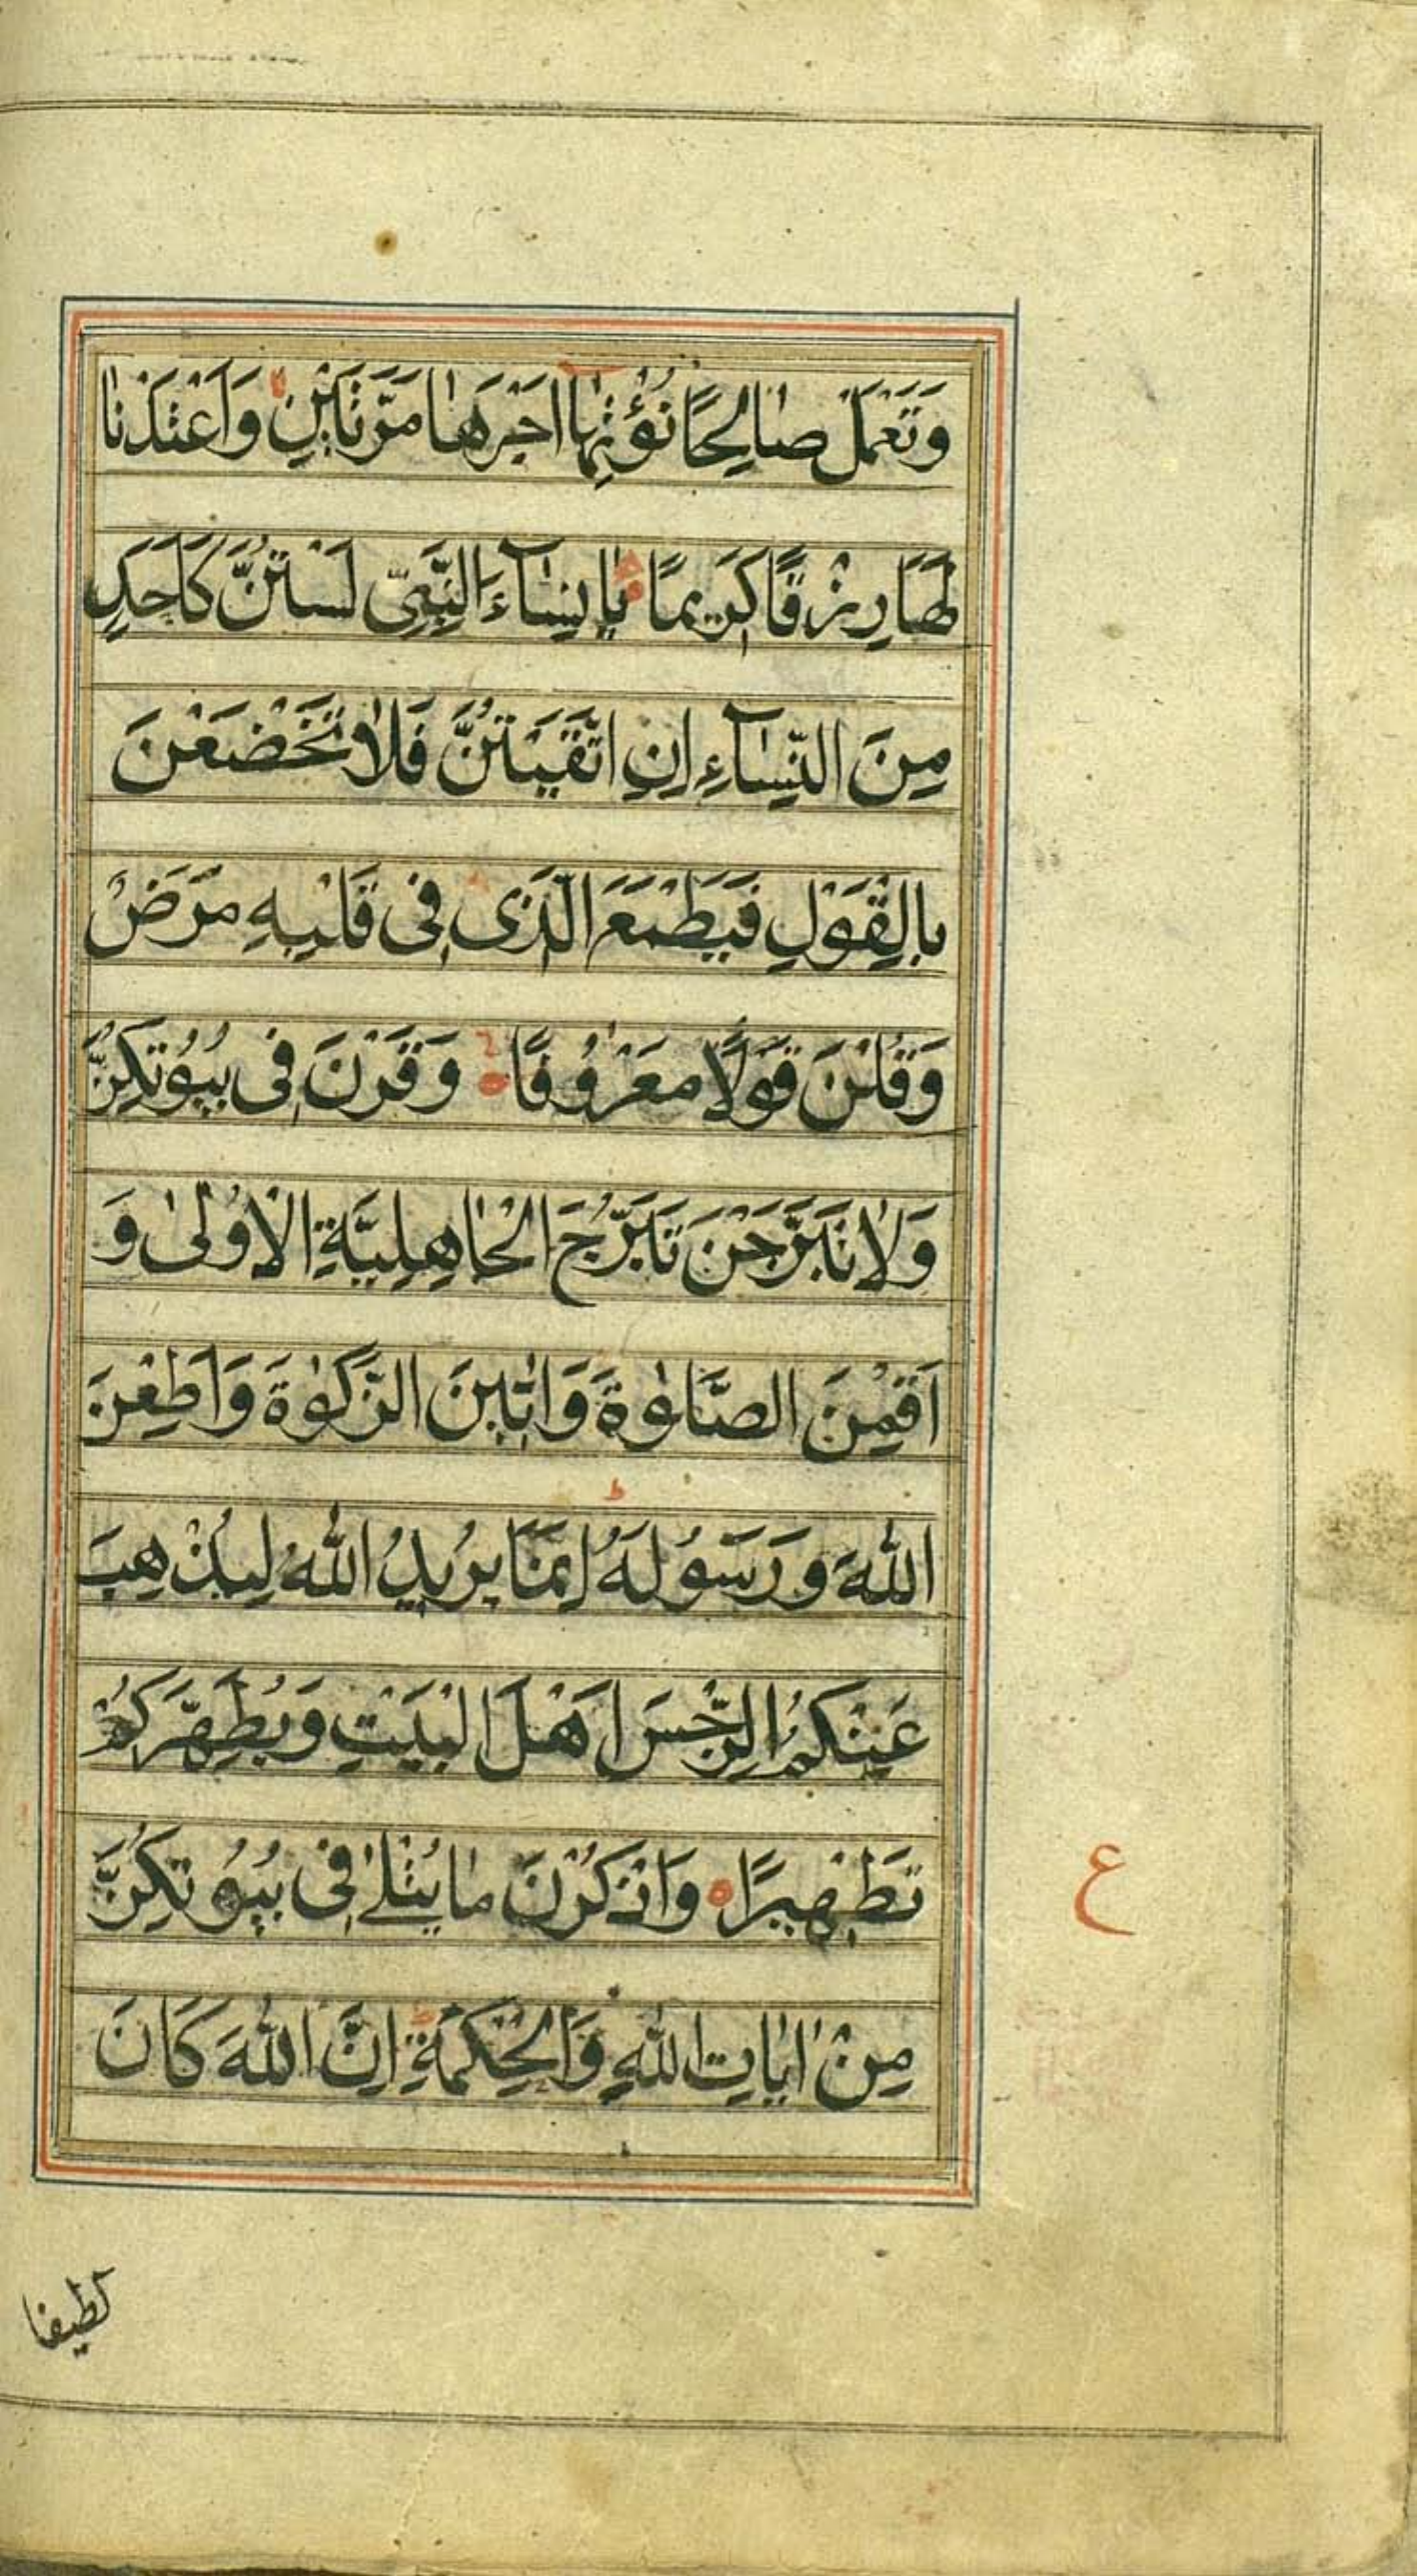 وَتَعْمَلْ صٰالِحًا نُؤْتِهٰا اَجْرَهٰا مَرَّتَيْنِ وَاَعْتَدْنٰا
لَهٰا رِزْقًا كَرِيمًا يٰا نِسٰآءَ النَّبِىِّ لَسْتُنَّ كَاَحَدٍ
مِنَ النِّسٰآءِ اِنِ اتَّقَيْتُنَّ فَلٰا تَخْضَعْنَ
بِالْقَوْلِ فَيَطْمَعَ الَّذِى فِى قَلْبِهِ مَرَضٌ
وَقُلْنَ قَوْلًا مَعْرُوفًا وَقَرْنَ فِى بُيُوتِكُنَّ
وَلٰا تَبَرَّجْنَ تَبَرُّجَ الْجٰاهِلِيَّةِ الْاُولىٰ وَ
اَقِمْنَ الصَّلٰوةَ وَاٰتِينَ الزَّكٰوةَ وَاَطِعْنَ
اللّٰهَ وَرَسُولَهُ اِنَّمٰا يُرِيدُ اللّٰهُ لِيُذْهِبَ
عَنْكُمُ الرِّجْسَ اَهْلَ الْبَيْتِ وَيُطَهِّرَكُمْ
تَطْهِيرًا وَاذْكُرْنَ مٰا يُتْلىٰ فِى بُيُوتِكُنَّ
ع
مِنْ اٰيٰاتِ اللّٰهِ وَالْحِكْمَةِ اِنَّ اللّٰهَ كَانَ
لطيفا